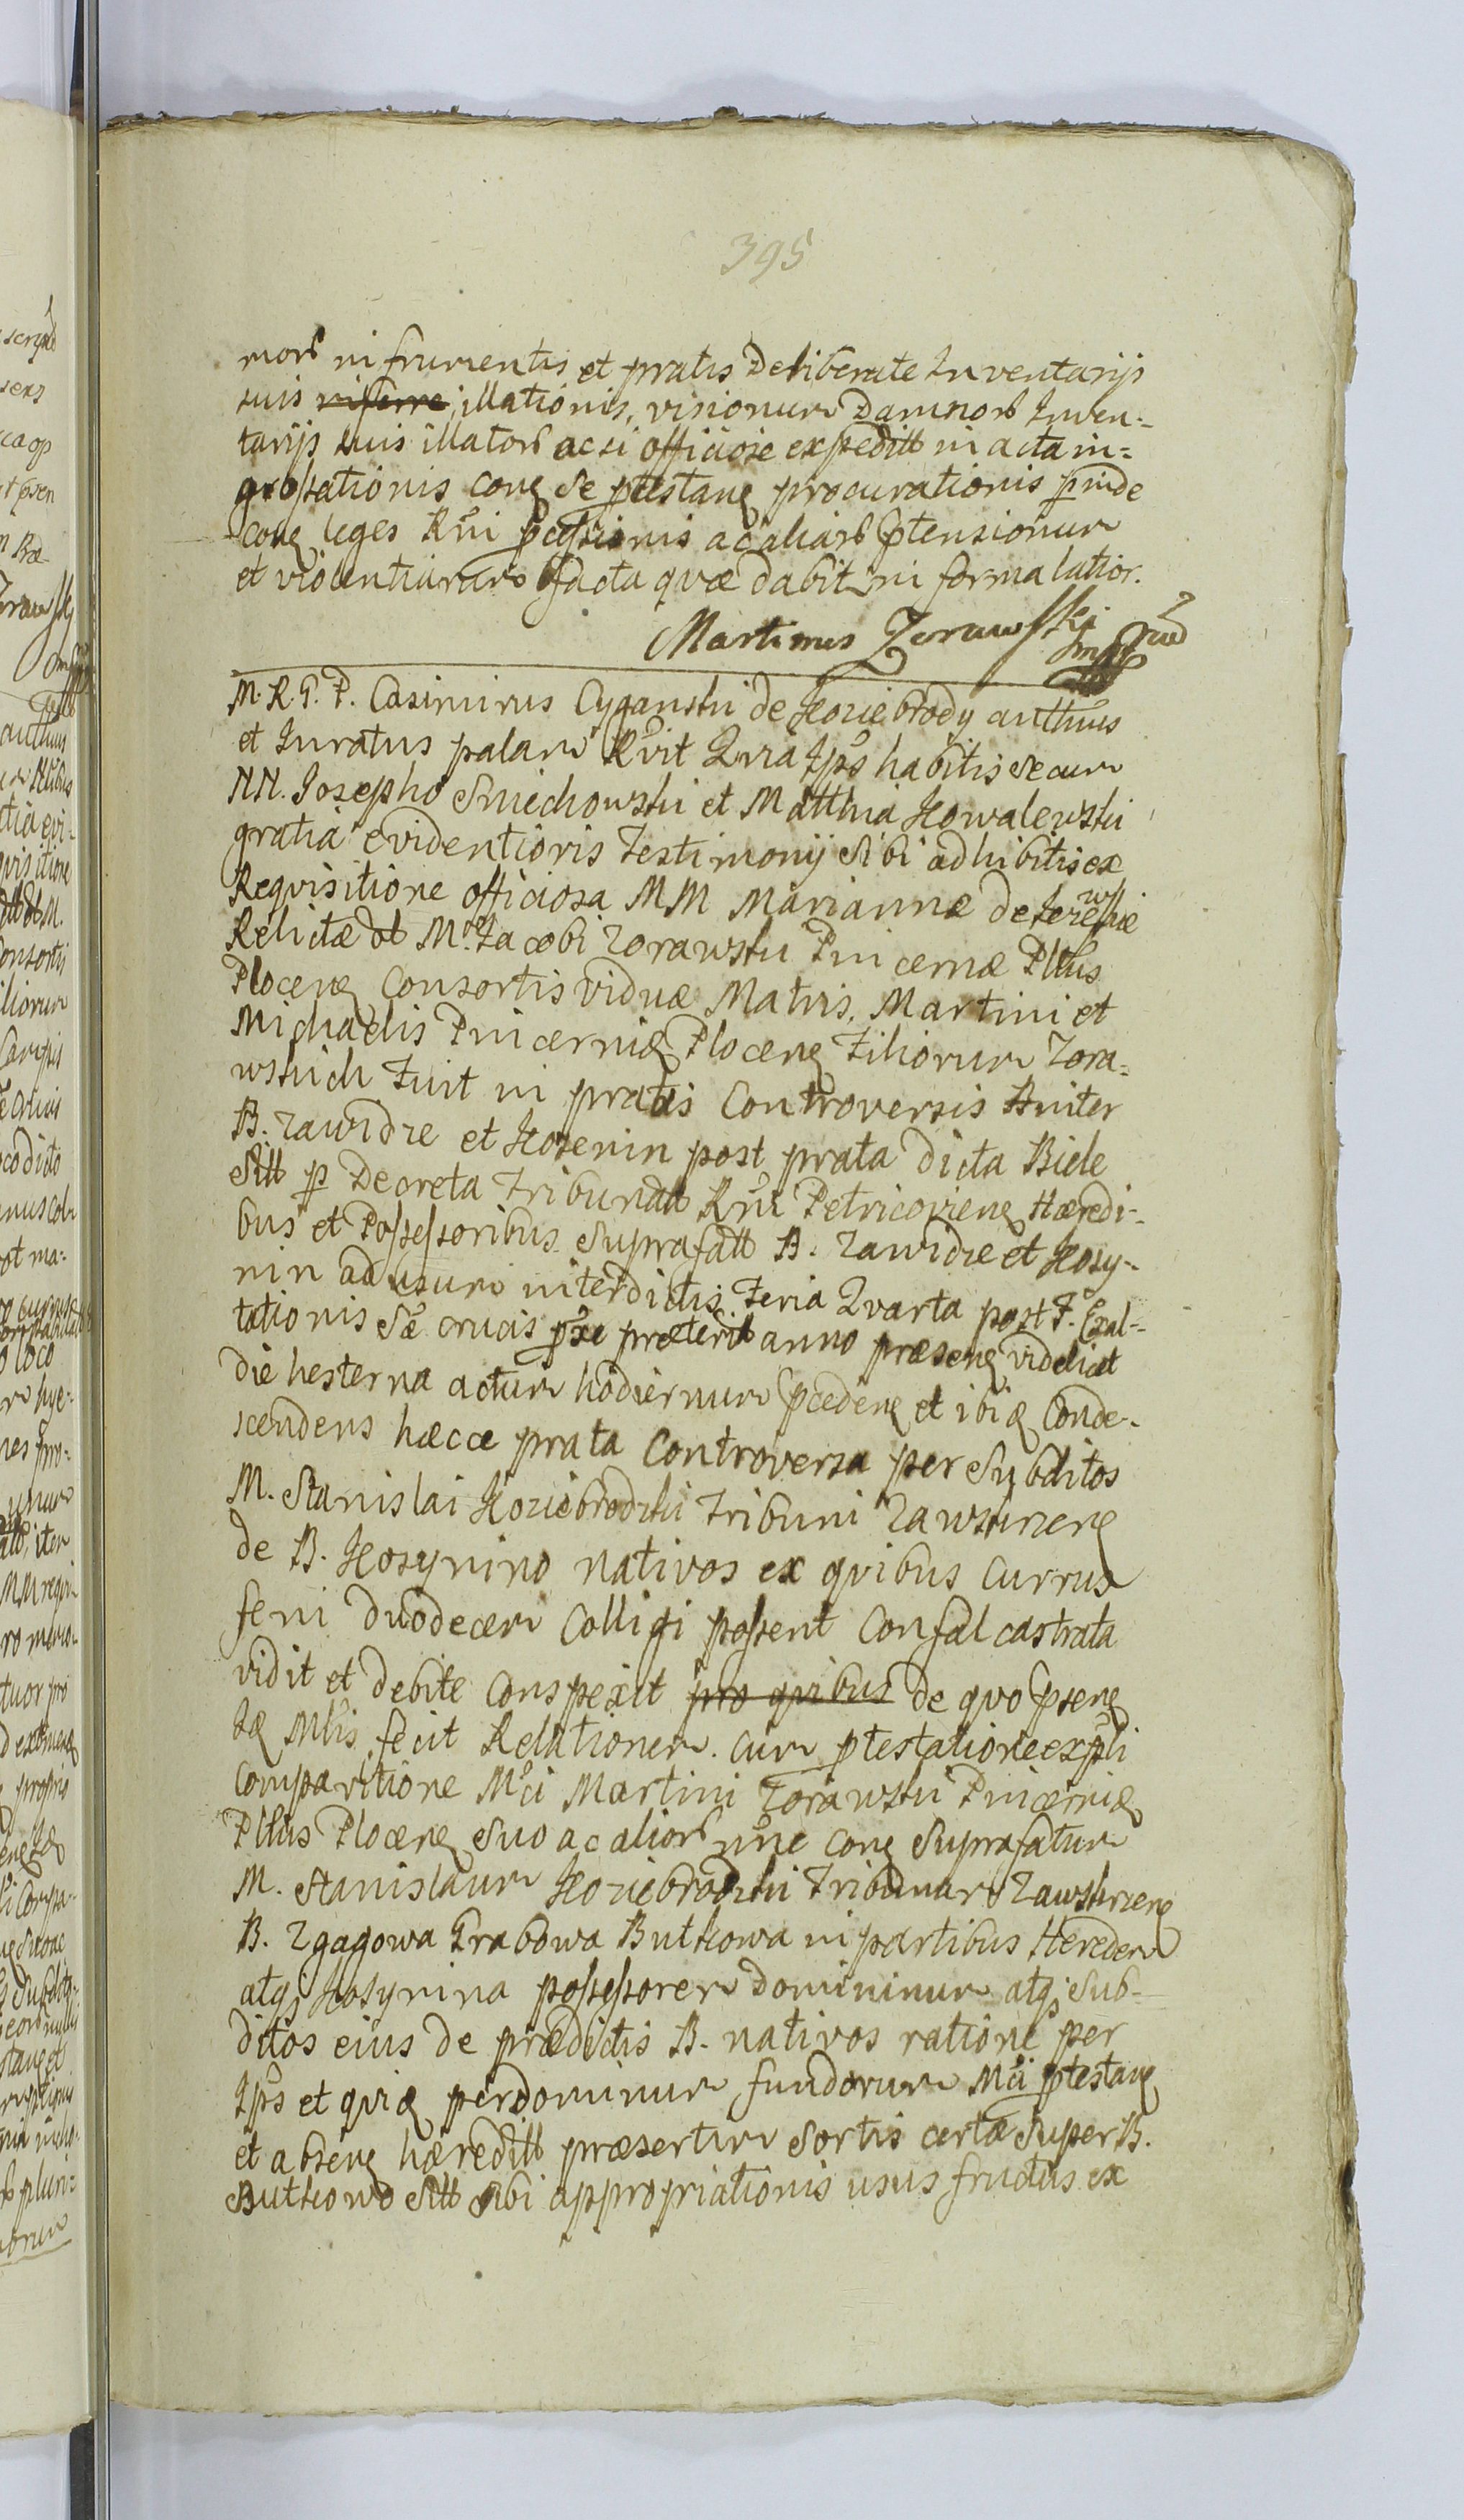 395
morũ in frumentis et pratis Deliberate Inventarijs
suis inferre illationis, visionum Damnorũ Inven-
tarijs suis illatorũ ac si officiose expeditt in acta in=
grossationis conq̃ se p̃testanq̃ procurationis p̃inde
conq̃ leges R̃ni p̃cessionis ac aliarũ p̃tensionum
et violentiarum facta quæ dabitr̃ in forma latior.
Martinus Zorawski
M. R. G. P. Casimirus Cyganski de Koziebrody authũs
et Juratus palam R̃vit Quia Ip̃s habitis secum
NN. Josepho Smiechowski et Matthia Kowalewski
gratia evidentioris Testimonij sibi adhibitis ex
Requisitione officiosa MM Mariannæ de
Relictæ Mci Jacobi Zorawski Pincernæ Pltus
Plocenq̃ Consortis viduæ Matris, Martini et
Michaelis Pincernidæ Plocenq̃ Filiorum Zora=
wskich Fuit in pratis Controversis inter
B. Zawidze et Kosenin post prata dicta Biele
Sitt p Decreta Tribunalt R̃ni Petricovienq̃ Hæredi-
bus et Possessoribus suprafatt B. Zawidze et Kosy-
nin ad usum interdictis Feria Quarta post F. Exal-
tationis Sæ crucis p̃xe præterit anno præsenq̃ videlicet
die hesterna actum hodiernum p̃cedenq̃ et ibiq̃ Conde-
scendens hæcce prata Controversa per Subditos
M. Stanislai Koziebrodzki Tribuni Zawskrzenq̃
de B. Kosynino nativos ex quibus Currus
feni duodecem Colligi possent Confalcastrata
vidit et debite Conspexit pro quibus de quo p̃senq̃
Mlis fecit Relationem. cum p̃testatione exp̃li
Comparitione Mci Martini Zorawski Pincernidæ
Pltus Plocenq̃ suo ac aliorũ nñe conq̃ suprafatum
M. Stanislaum Koziebrodzki Tribunum Zawskrzenq̃
B. Zgagowa Grabowa Butkowa in partibus Heredem
atq̃ Kosynina possessorem Domininum atq̃ Sub-
ditos eius de prædictis B. nativos ratione per
Ip̃s et quiq̃ perdominum fundorum Mci p̃testanq̃
et absenq̃ hæreditt præsertim Sortis certæ super B.
Butkowo Sitt sibi appropriationis usus fructus ex